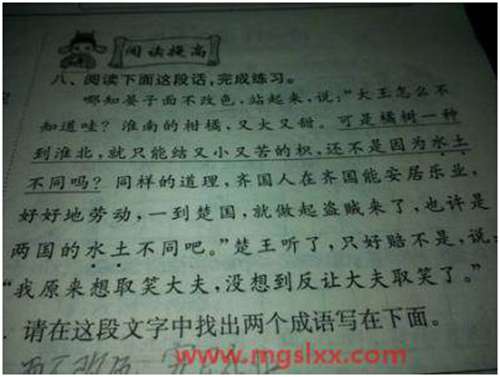 阅读提高
八、阅读下面这段话,完成练习。
哪知晏子面不改色,站起来,说:“大王怎么不
知道哇?淮南的柑橘,又大又甜。可是橘树一种
到淮北,就只能结又小又苦的枳,还不是因为水土
不同吗?同样的道理,齐国人在齐国能安居乐业,
好好地劳动,一到楚国,就做起盗贼来了,也许是
两国的水土不同吧。”楚王听了,只好赔不是,说
“我原来想取笑大夫,没想到反让大夫取笑了。”
请在这段文字中找出两个成语写在下面。
www.mgslxx.com